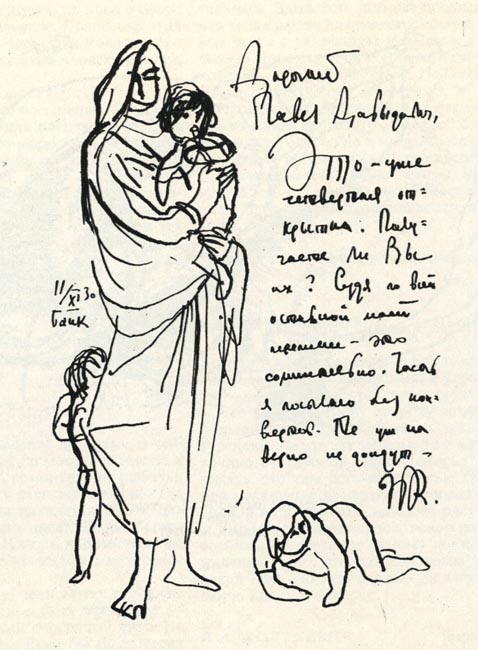 Дорогой
Павел Давыдович,
Это – уже
четвертая от-
крытка. Полу-
чаете ли Вы
их? Судя по всей
остальной моей
– это
сомнительно. Часть
я посылаю без кон-
вертов. Те уж на
верно не дойдут –
НК.
11/XI 30
Баку